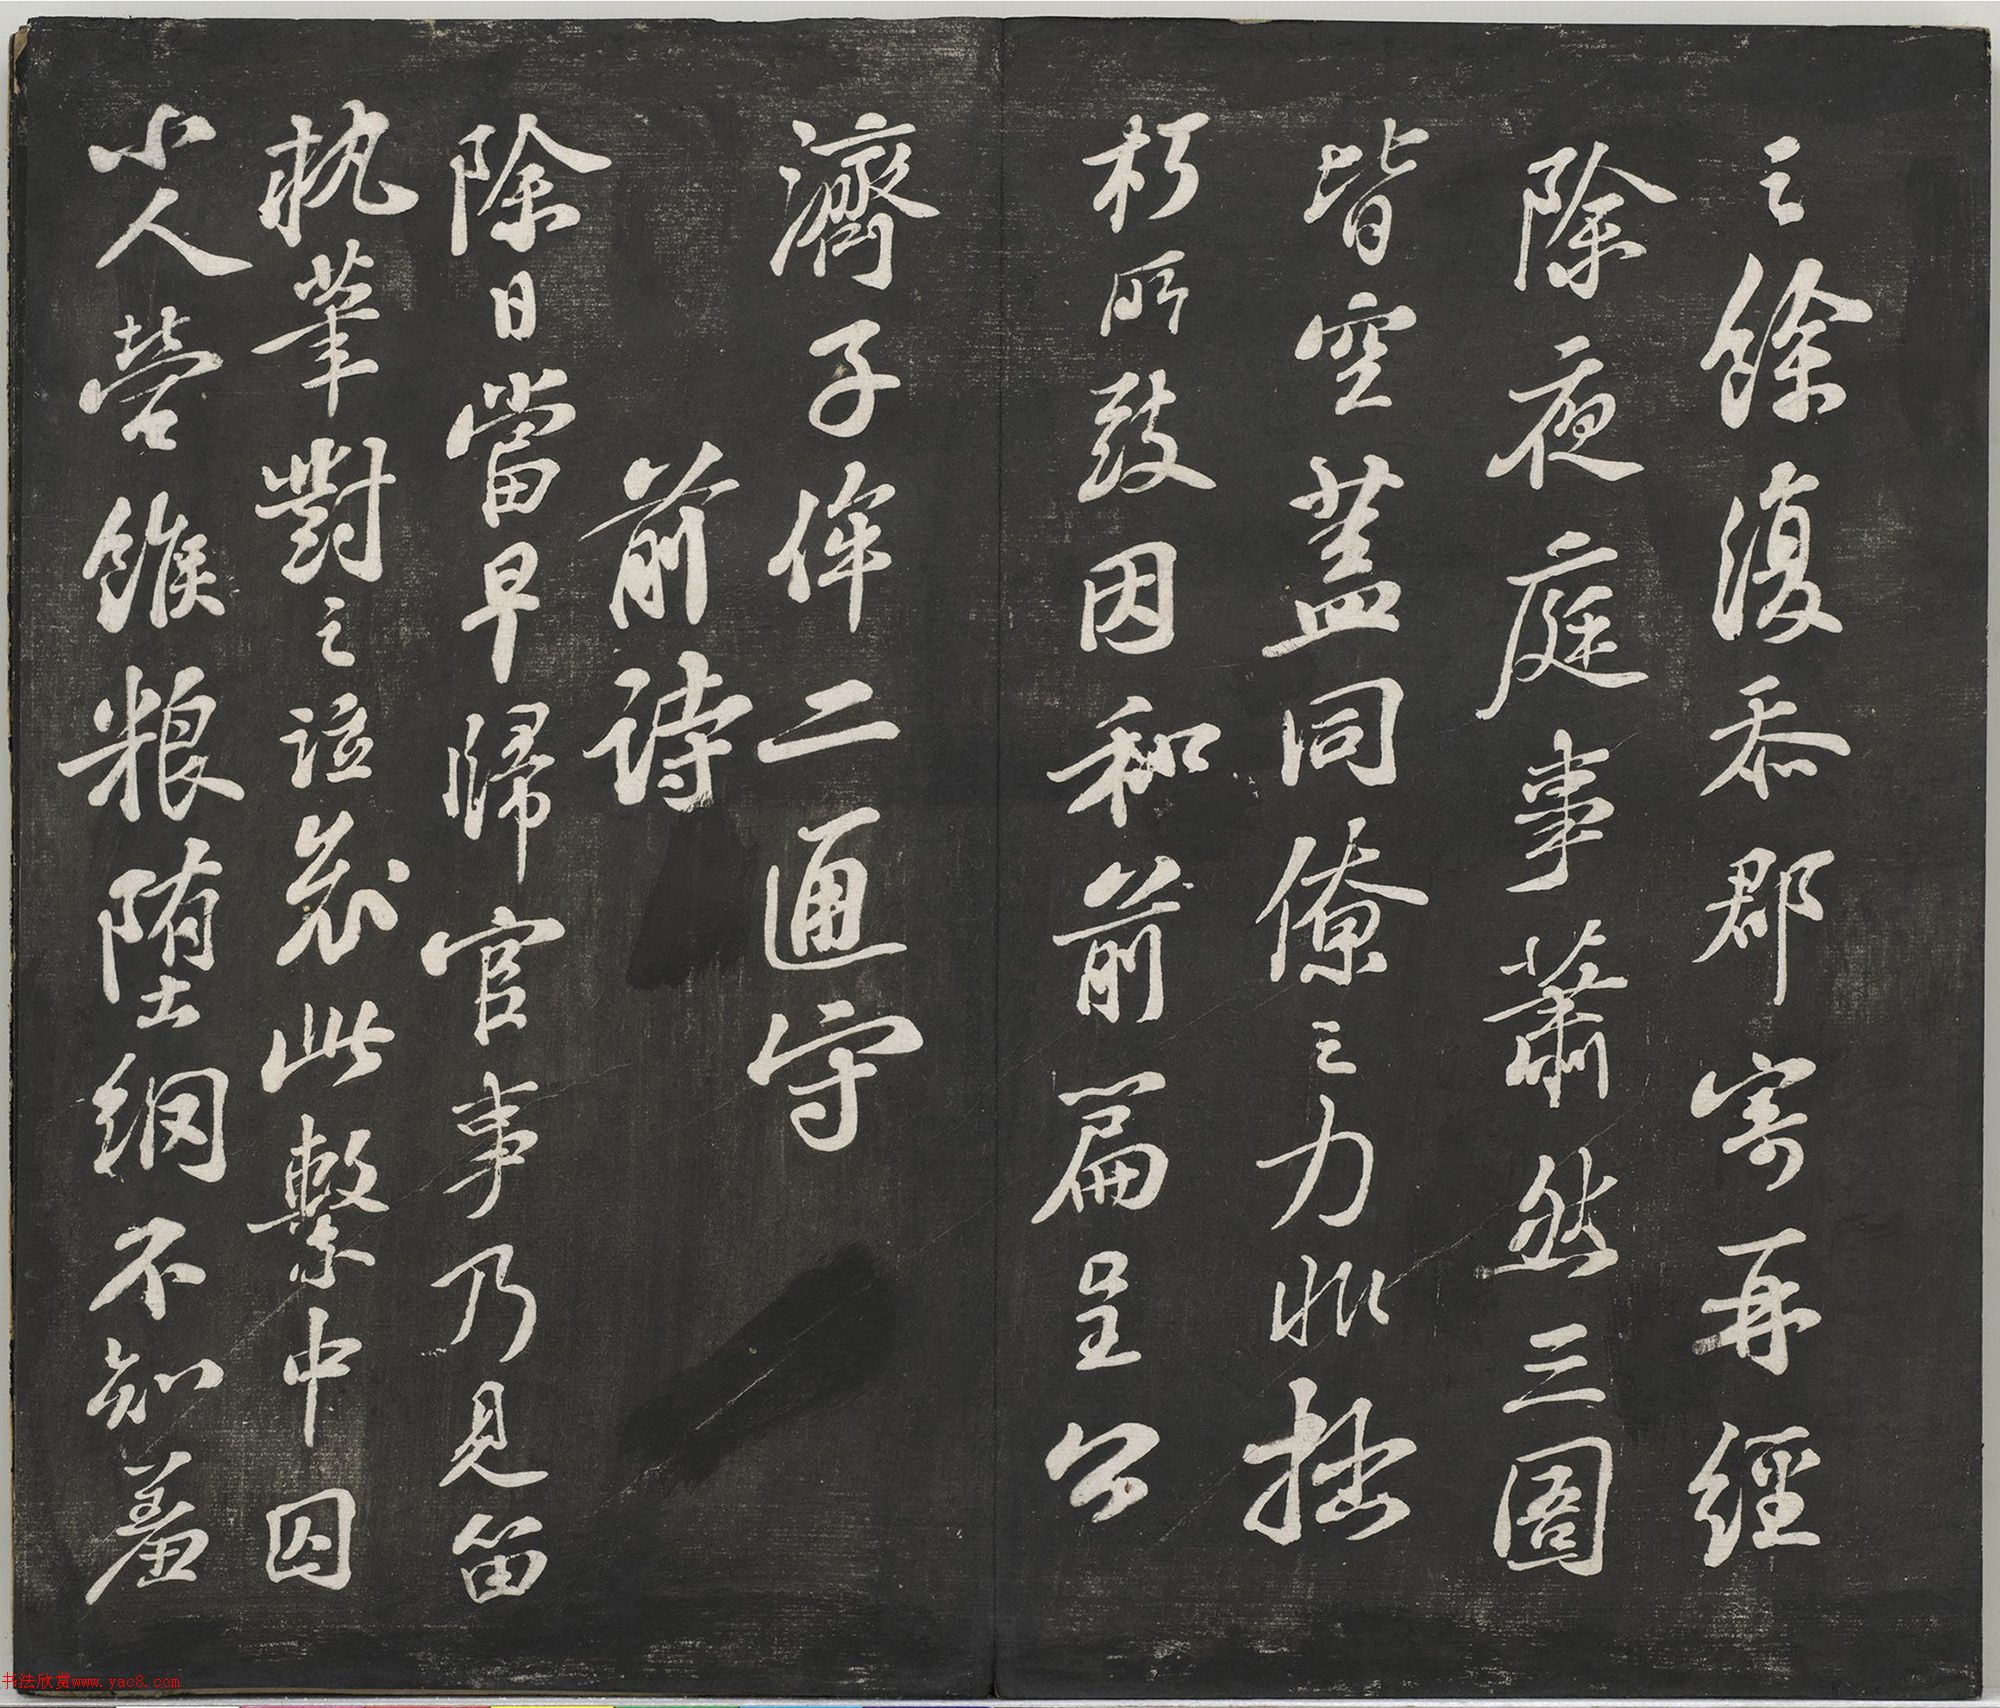 之餘復忝郡寄再經
除夜庭事蕭然三圄
皆空蓋同僚之力非拙
朽所致因和前篇呈公
濟子侔二通守
前詩
除日當早歸官事乃見留
執筆對之泣哀此繫中囚
小人營餱粮堕網不知羞
书法欣赏www.yac8.com